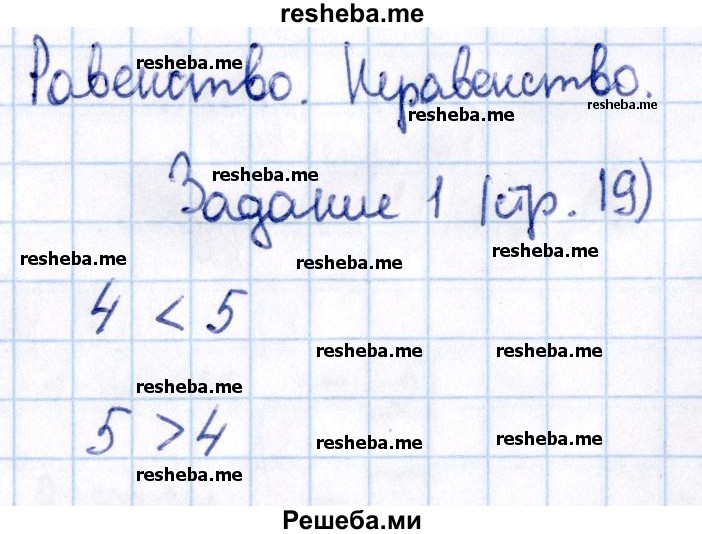 resheba.me
resheba.me
Равенство. Неравенство.
resheba.me
resheba.me
resheba.me
Задание 1 (стр. 19)
resheba.me
resheba.me
resheba.me
4 < 5
resheba.me resheba.me
resheba.me
5 > 4
resheba.me resheba.me
resheba.me
Решеба.ми